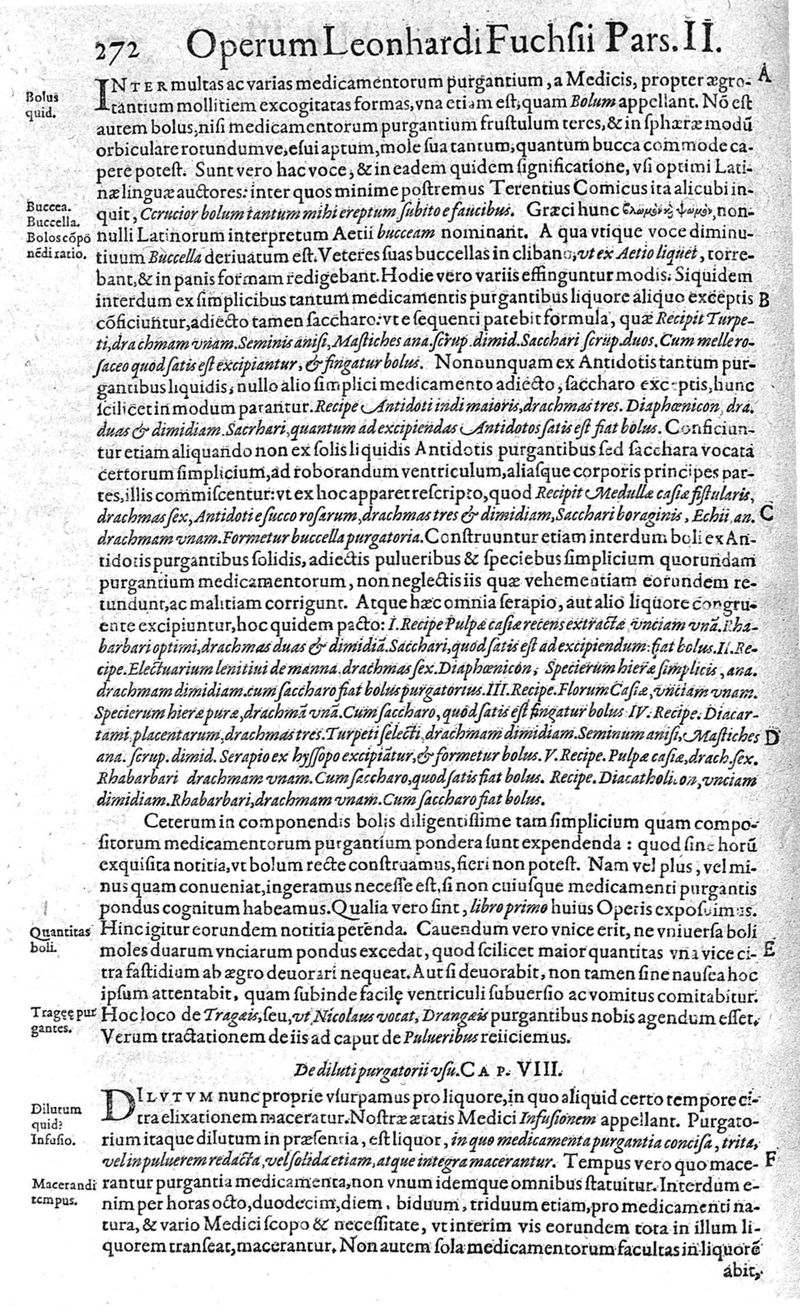 272 Operum Leonhardi Fuchſii Pars. II.
INTER multas ac varias medicamentorum purgantium, a Medicis, propter ægro- A
Bolus quid.
tantium mollitiem excogitatas formas, vna etiam eſt, quam Bolum appellant. Nō eſt
autem bolus, niſi medicamentorum purgantium fruſtulum teres, & in ſphæræ modū
orbiculare rotundumve, eſui aptum, mole ſua tantum, quantum bucca commode ca-
pere poteſt. Sunt vero hac voce, & in eadem quidem ſignificatione, vſi optimi Lati-
næ linguæ auctores: inter quos minime poſtremus Terentius Comicus ita alicubi in-
Buccea.
Buccella.
quit, Crucior bolum tantum mihi ereptum ſubito e faucibus. Græci hunc ψωμὸν, non-
Boloscōpō
nēdi ratio.
nulli Latinorum interpretum Aetii bucceam nominant. A qua vtique voce diminu-
tiuum Buccella deriuatum eſt. Veteres ſuas buccellas in clibano, vt ex Aetio liquet, torre-
bant, & in panis formam redigebant. Hodie vero variis effinguntur modis: Siquidem
interdum ex ſimplicibus tantum medicamentis purgantibus liquore aliquo exceptis B
cōficiuntur, adiecto tamen ſaccharo: vt e ſequenti patebit formula, quæ Recipit Turpe-
ti, drachmam vnam. Seminis aniſi, Maſtiches ana. ſcrup. dimid. Sacchari ſcrup. duos. Cum melle ro-
ſaceo quod ſatis eſt excipiantur, & fingatur bolus. Nonnunquam ex Antidotis tantum pur-
gantibus liquidis, nullo alio ſimplici medicamento adiecto, ſaccharo exceptis, hunc
ſcilicet in modum parantur. Recipe Antidoti indi maioris, drachmas tres. Diaphœnicon, dra.
duas & dimidiam. Sacrhari, quantum ad excipiendas Antidotos ſatis eſt fiat bolus. Conficiun-
tur etiam aliquando non ex ſolis liquidis Antidotis purgantibus ſed ſacchara vocata
certorum ſimplicium, ad roborandum ventriculum, aliaſque corporis principes par-
tes, illis commiſcentur: vt ex hoc apparet reſcripto, quod Recipit Medullæ caſiæ fiſtularis,
drachmas ſex, Antidoti e ſucco roſarum, drachmas tres & dimidiam, Sacchari boraginis, Echii, an. C
drachmam vnam. Formetur buccella purgatoria. Conſtruuntur etiam interdum boli ex An-
tidotis purgantibus ſolidis, adiectis pulueribus & ſpeciebus ſimplicium quorundam
purgantium medicamentorum, non neglectis iis quæ vehementiam eorundem re-
tundunt, ac malitiam corrigunt. Atque hæc omnia ſerapio, aut alio liquore congru-
ente excipiuntur, hoc quidem pacto: I. Recipe Pulpæ caſiæ recens extractæ, vnciam vnā. Rha-
barbari optimi, drachmas duas & dimidiā. Sacchari, quod ſatis eſt ad excipiendum: fiat bolus. II. Re-
cipe. Electuarium lenitiui de manna, drachmas ſex. Diaphœnicon, Specierum hieræ ſimplicis, ana.
drachmam dimidiam. cum ſaccharo fiat bolus purgatorius. III. Recipe. Florum Caſiæ, vnciam vnam.
Specierum hieræ puræ, drachmā vnā. Cum ſaccharo, quod ſatis eſt fingatur bolus. IV. Recipe. Diacar-
tami, placentarum, drachmas tres. Turpeti ſelecti, drachmam dimidiam. Seminum aniſi, Maſtiches D
ana. ſcrup. dimid. Serapio ex hyſſopo excipiātur, & formetur bolus. V. Recipe. Pulpæ caſiæ, drach. ſex.
Rhabarbari drachmam vnam. Cum ſaccharo, quod ſatis fiat bolus. Recipe. Diacatholicon, vnciam
dimidiam. Rhabarbari, drachmam vnam. Cum ſaccharo fiat bolus.
Ceterum in componendis bolis diligentiſſime tam ſimplicium quam compo-
ſitorum medicamentorum purgantium pondera ſunt expendenda: quod ſine horū
exquiſita notitia, vt bolum recte conſtruamus, fieri non poteſt. Nam vel plus, vel mi-
nus quam conueniat, ingeramus neceſſe eſt, ſi non cuiuſque medicamenti purgantis
pondus cognitum habeamus. Qualia vero ſint, libro primo huius Operis expoſuimus.
Quantitas
boli.
Hinc igitur eorundem notitia petenda. Cauendum vero vnice erit, ne vniuerſa boli
moles duarum vnciarum pondus excedat, quod ſcilicet maior quantitas vna vice ci- E
tra faſtidium ab ægro deuorari nequeat. Aut ſi deuorabit, non tamen ſine nauſea hoc
ipſum attentabit, quam ſubinde facilę ventriculi ſubuerſio ac vomitus comitabitur.
Tragęę pur
gantes.
Hoc loco de Tragæis, ſeu, vt Nicolaus vocat, Drangæis purgantibus nobis agendum eſſet.
Verum tractationem de iis ad caput de Pulueribus reiiciemus.
De diluti purgatorii vſu. CAP. VIII.
DILVTVM nunc proprie vſurpamus pro liquore, in quo aliquid certo tempore ci-
Dilutum
quid?
Infuſio.
tra elixationem maceratur. Noſtræ ætatis Medici Infuſionem appellant. Purgato-
rium itaque dilutum in præſentia, eſt liquor, in quo medicamenta purgantia conciſa, trita,
vel in puluerem redacta, vel ſolida etiam, atque integra macerantur. Tempus vero quo mace- F
Macerandi
tempus.
rantur purgantia medicamenta, non vnum idemque omnibus ſtatuitur. Interdum e-
nim per horas octo, duodecim, diem, biduum, triduum etiam, pro medicamenti na-
tura, & vario Medici ſcopo & neceſſitate, vt interim vis eorundem tota in illum li-
quorem tranſeat, macerantur. Non autem ſola medicamentorum facultas in liquorē
abit,